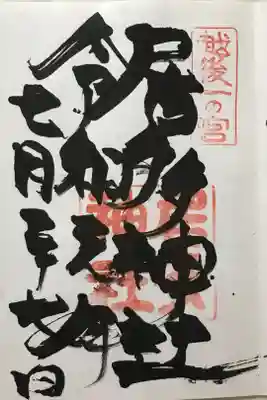 越後一の宮
居多神社
居多神社
令和元年
七月二十七日